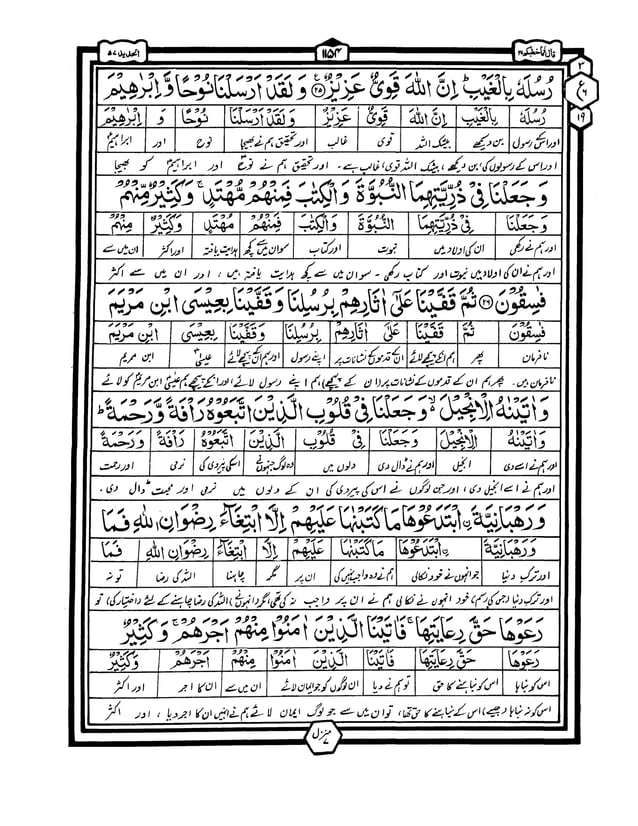 قال فما خطبكم ۲۷ ۱۱۵۴ الحدید ۵۷
۳
ع
۶
۱۹
رُسُلَهٗ بِالْغَيْبِ ؕ اِنَّ اللّٰهَ قَوِيٌّ عَزِيْزٌ ﴿۲۵﴾ وَ لَقَدْ اَرْسَلْنَا نُوْحًا وَّ اِبْرٰهِيْمَ
رُسُلَهٗ بِالْغَيْبِ اِنَّ اللّٰهَ قَوِيٌّ عَزِيْزٌ وَ لَقَدْ اَرْسَلْنَا نُوْحًا وَ اِبْرٰهِيْمَ
اور اسکے رسول بن دیکھے بیشک اللہ قوی غالب اور تحقیق ہم نے بھیجا نوح اور ابراہیم
اور اس کے رسولوں کی بن دیکھے ، بیشک اللہ قوی، غالب ہے۔ اور تحقیق ہم نے نوح اور ابراہیم کو بھیجا
وَ جَعَلْنَا فِيْ ذُرِّيَّتِهِمَا النُّبُوَّةَ وَ الْكِتٰبَ فَمِنْهُمْ مُّهْتَدٍ ۚ وَ كَثِيْرٌ مِّنْهُمْ
وَ جَعَلْنَا فِيْ ذُرِّيَّتِهِمَا النُّبُوَّةَ وَ الْكِتٰبَ فَمِنْهُمْ مُهْتَدٍ وَ كَثِيْرٌ مِنْهُمْ
اور ہم نے رکھی ان کی اولاد میں نبوت اور کتاب سو ان میں سے کچھ ہدایت یافتہ اور اکثر ان میں سے
اور ہم نے ان کی اولاد میں نبوت اور کتاب رکھی۔ سو ان میں سے کچھ ہدایت یافتہ ہیں ، اور ان میں سے اکثر
فٰسِقُوْنَ ﴿۲۶﴾ ثُمَّ قَفَّيْنَا عَلٰۤى اٰثَارِهِمْ بِرُسُلِنَا وَ قَفَّيْنَا بِعِيْسَى ابْنِ مَرْيَمَ
فٰسِقُوْنَ ثُمَّ قَفَّيْنَا عَلٰۤى اٰثَارِهِمْ بِرُسُلِنَا وَ قَفَّيْنَا بِعِيْسَى ابْنِ مَرْيَمَ
نافرمان پھر ہم انکے پیچھے لائے ان کے قدموں کے نشانات پر اپنے رسول اور ہم انکے پیچھے لائے عیسیٰ ابن مریم
نافرمان ہیں۔ پھر ہم ان کے قدموں کے نشانات پر (ان کے پیچھے) ہم اپنے رسول لائے اور انکے پیچھے ہم عیسیٰ ابن مریم کو لائے
وَ اٰتَيْنٰهُ الْاِنْجِيْلَ ۙ۬ وَ جَعَلْنَا فِيْ قُلُوْبِ الَّذِيْنَ اتَّبَعُوْهُ رَاْفَةً وَّ رَحْمَةً ؕ
وَ اٰتَيْنٰهُ الْاِنْجِيْلَ وَ جَعَلْنَا فِيْ قُلُوْبِ الَّذِيْنَ اتَّبَعُوْهُ رَاْفَةً وَ رَحْمَةً
اور ہم نے اسے دی انجیل اور ہم نے ڈال دی دلوں میں وہ لوگ جنہوں نے اسکی پیروی کی نرمی اور رحمت
اور ہم نے اسے انجیل دی ، اور جن لوگوں نے اس کی پیروی کی ان کے دلوں میں نرمی اور محبت ڈال دی۔
وَ رَهْبَانِيَّةَ ابْتَدَعُوْهَا مَا كَتَبْنٰهَا عَلَيْهِمْ اِلَّا ابْتِغَآءَ رِضْوَانِ اللّٰهِ فَمَا
وَ رَهْبَانِيَّةَ ابْتَدَعُوْهَا مَا كَتَبْنٰهَا عَلَيْهِمْ اِلَّا ابْتِغَآءَ رِضْوَانِ اللّٰهِ فَمَا
اور ترکِ دنیا جو انہوں نے خود نکالی ہم نے وہ واجب نہیں کی ان پر مگر چاہنا اللہ کی رضا تو نہ
اور ترکِ دنیا (جس کی رسم) خود انہوں نے نکالی ہم نے ان پر واجب نہ کی تھی، مگر (انہوں نے) اللہ کی رضا چاہنے کے لئے (اختیار کی)، تو
رَعَوْهَا حَقَّ رِعَايَتِهَا ۚ فَاٰتَيْنَا الَّذِيْنَ اٰمَنُوْا مِنْهُمْ اَجْرَهُمْ ۚ وَ كَثِيْرٌ
رَعَوْهَا حَقَّ رِعَايَتِهَا فَاٰتَيْنَا الَّذِيْنَ اٰمَنُوْا مِنْهُمْ اَجْرَهُمْ وَ كَثِيْرٌ
اس کو نباہا اس کو نباہنے کا حق تو ہم نے دیا ان لوگوں کو جو ایمان لائے ان میں سے ان کا اجر اور اکثر
اس کو نہ نباہا (جیسے) اس کے نباہنے کا حق تھا، تو ان میں سے جو لوگ ایمان لائے ہم نے انہیں ان کا اجر دیا ، اور اکثر
منزل ۷